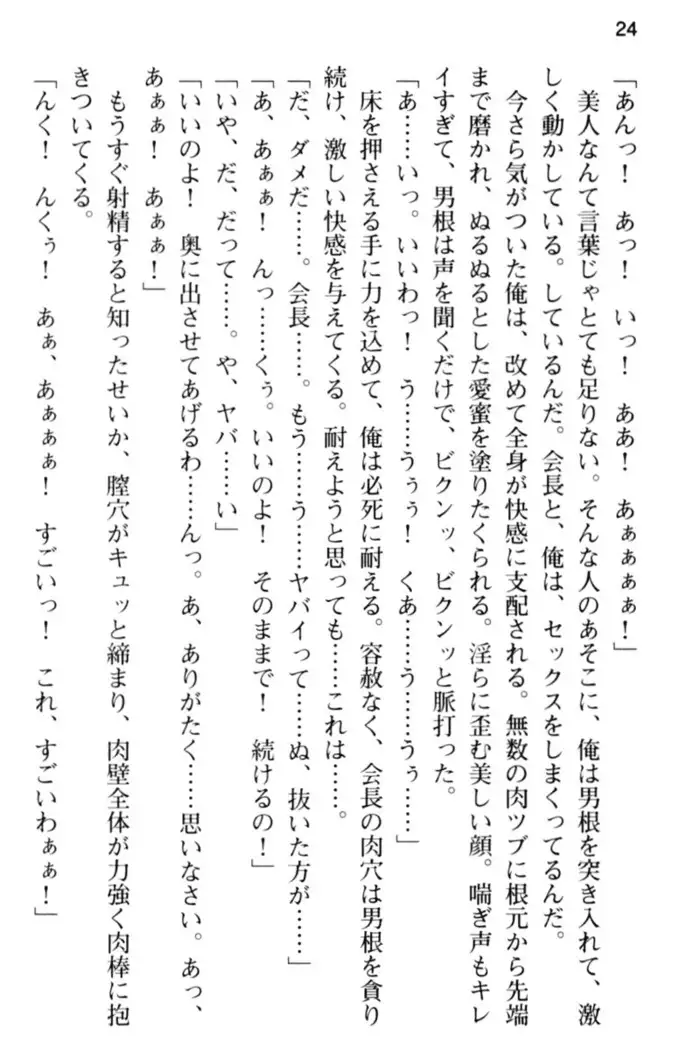 24
「あんっ！　あっ！　いっ！　ああ！　あぁぁぁぁ！」
　美人なんて言葉じゃとても足りない。そんな人のあそこに、俺は男根を突き入れて、激
しく動かしている。しているんだ。会長と、俺は、セックスをしまくってるんだ。
　今さら気がついた俺は、改めて全身が快感に支配される。無数の肉ツブに根元から先端
まで磨かれ、ぬるぬるとした愛蜜を塗りたくられる。淫らに歪む美しい顔。喘ぎ声もキレ
イすぎて、男根は声を聞くだけで、ビクンッ、ビクンッと脈打った。
「あ……いっ。いいわっ！　う……うぅぅ！　くあ……う……うぅ……」
　床を押さえる手に力を込めて、俺は必死に耐える。容赦なく、会長の肉穴は男根を貪り
続け、激しい快感を与えてくる。耐えようと思っても……これは……。
「だ、ダメだ……。会長……。もう……う……ヤバイって……ぬ、抜いた方が……」
「あ、あぁぁ！　んっ……くぅ。いいのよ！　そのままで！　続けるの！」
「いや、だ、だって……。や、ヤバ……い」
「いいのよ！　奥に出させてあげるわ……んっ。あ、ありがたく……思いなさい。あっ、
あぁぁ！　あぁぁ！」
　もうすぐ射精すると知ったせいか、膣穴がキュッと締まり、肉壁全体が力強く肉棒に抱
きついてくる。
「んく！　んくぅ！　あぁ、あぁぁぁ！　すごいっ！　これ、すごいわぁぁ！」